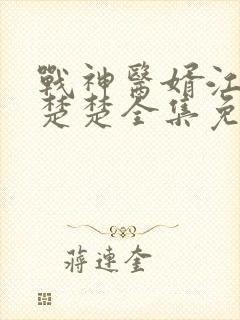 戰神醫婿江
楚楚全集免
蔣連奎